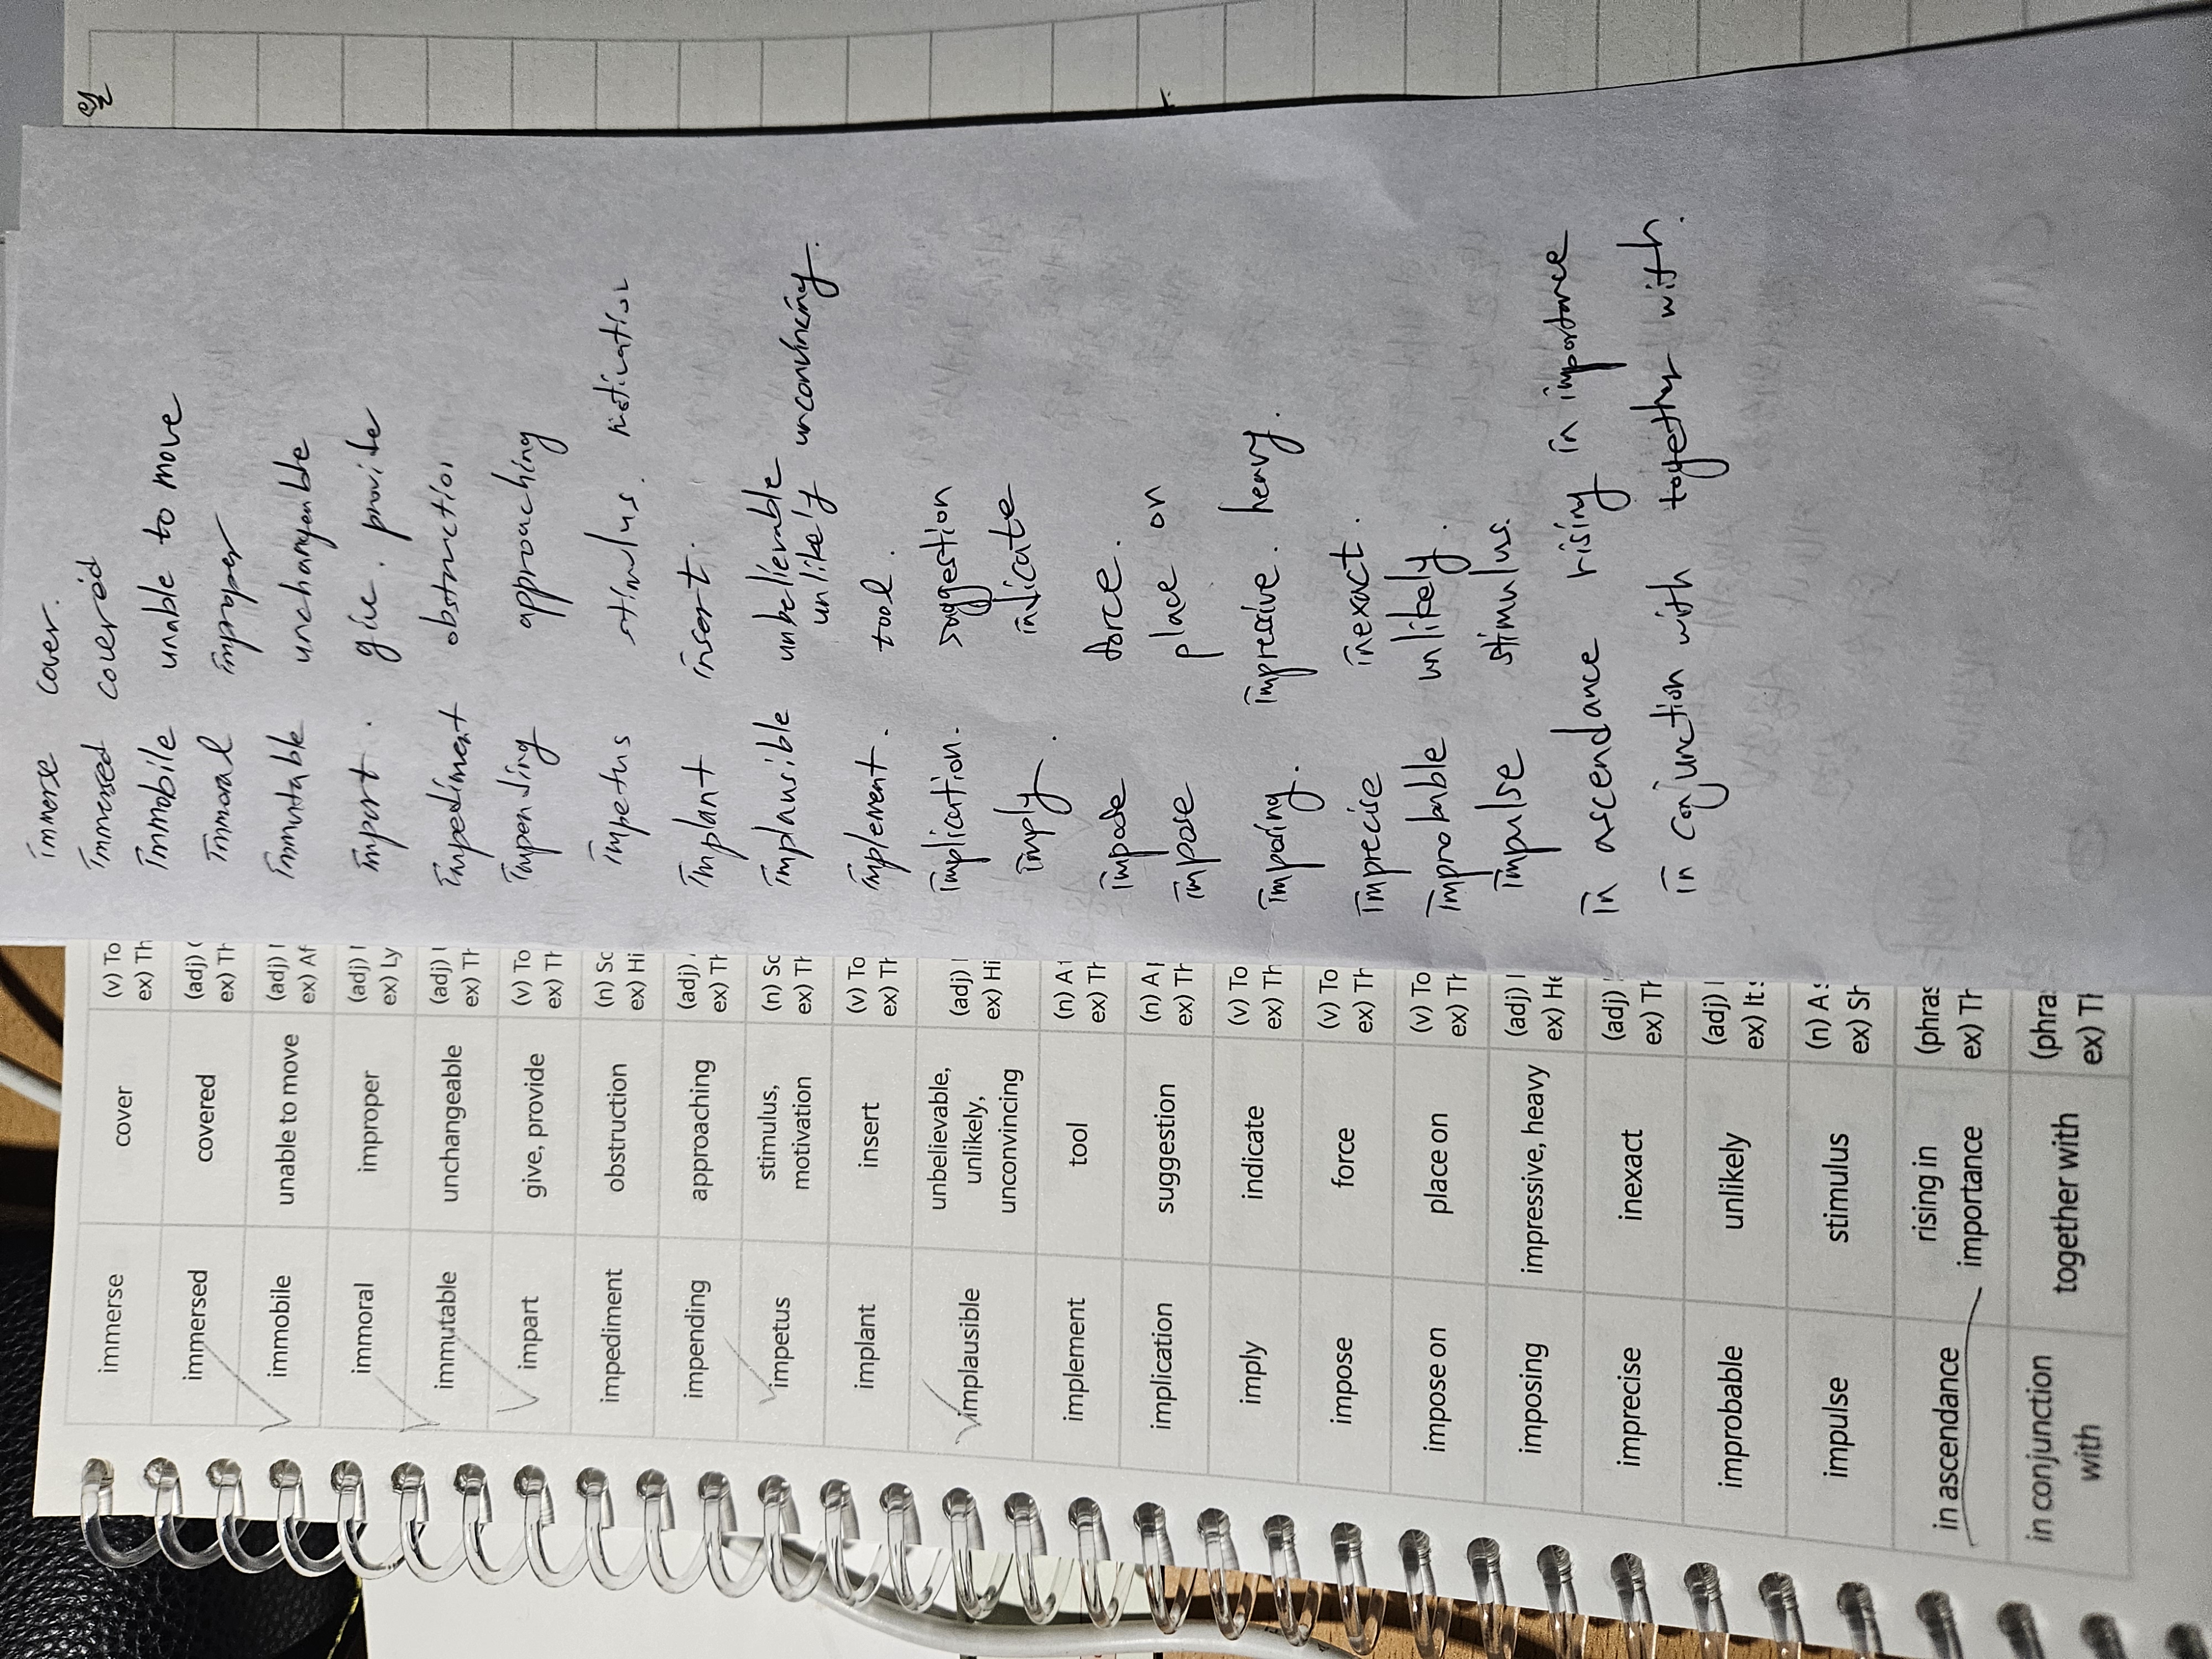 immerse cover (v) To
ex) Th
immersed covered (adj)
ex) Th
immobile unable to move (adj)
ex) Af
immoral improper (adj)
ex) Ly
immutable unchangeable (adj)
ex) Th
impart give, provide (v) To
ex) Th
impediment obstruction (n) So
ex) Hi
impending approaching (adj)
ex) Th
impetus stimulus, (n) So
motivation ex) Th
implant insert (v) To
ex) Th
implausible unbelievable, (adj)
unlikely, ex) Hi
unconvincing
implement tool (n) A
ex) Th
implication suggestion (n) A
ex) Th
imply indicate (v) To
ex) Th
impose force (v) To
ex) Th
impose on place on (v) To
ex) Th
imposing impressive, heavy (adj)
ex) He
imprecise inexact (adj)
ex) Th
improbable unlikely (adj)
ex) It
impulse stimulus (n) A
ex) Sh
in ascendance rising in (phras
importance ex) Th
in conjunction together with (phra
with ex) Th
immerse cover.
immersed covered
immobile unable to move
immoral improper
immutable unchangeable
impart. give. provide
impediment obstruction
impending approaching
impetus stimulus. motivation
implant insert.
implausible unbelievable
unlikely unconvincing.
implement. tool.
implication. suggestion
imply. indicate
impose force.
impose place on
imposing. impressive. heavy.
imprecise inexact.
improbable unlikely.
impulse stimulus.
in ascendance rising in importance
in conjunction with together with.